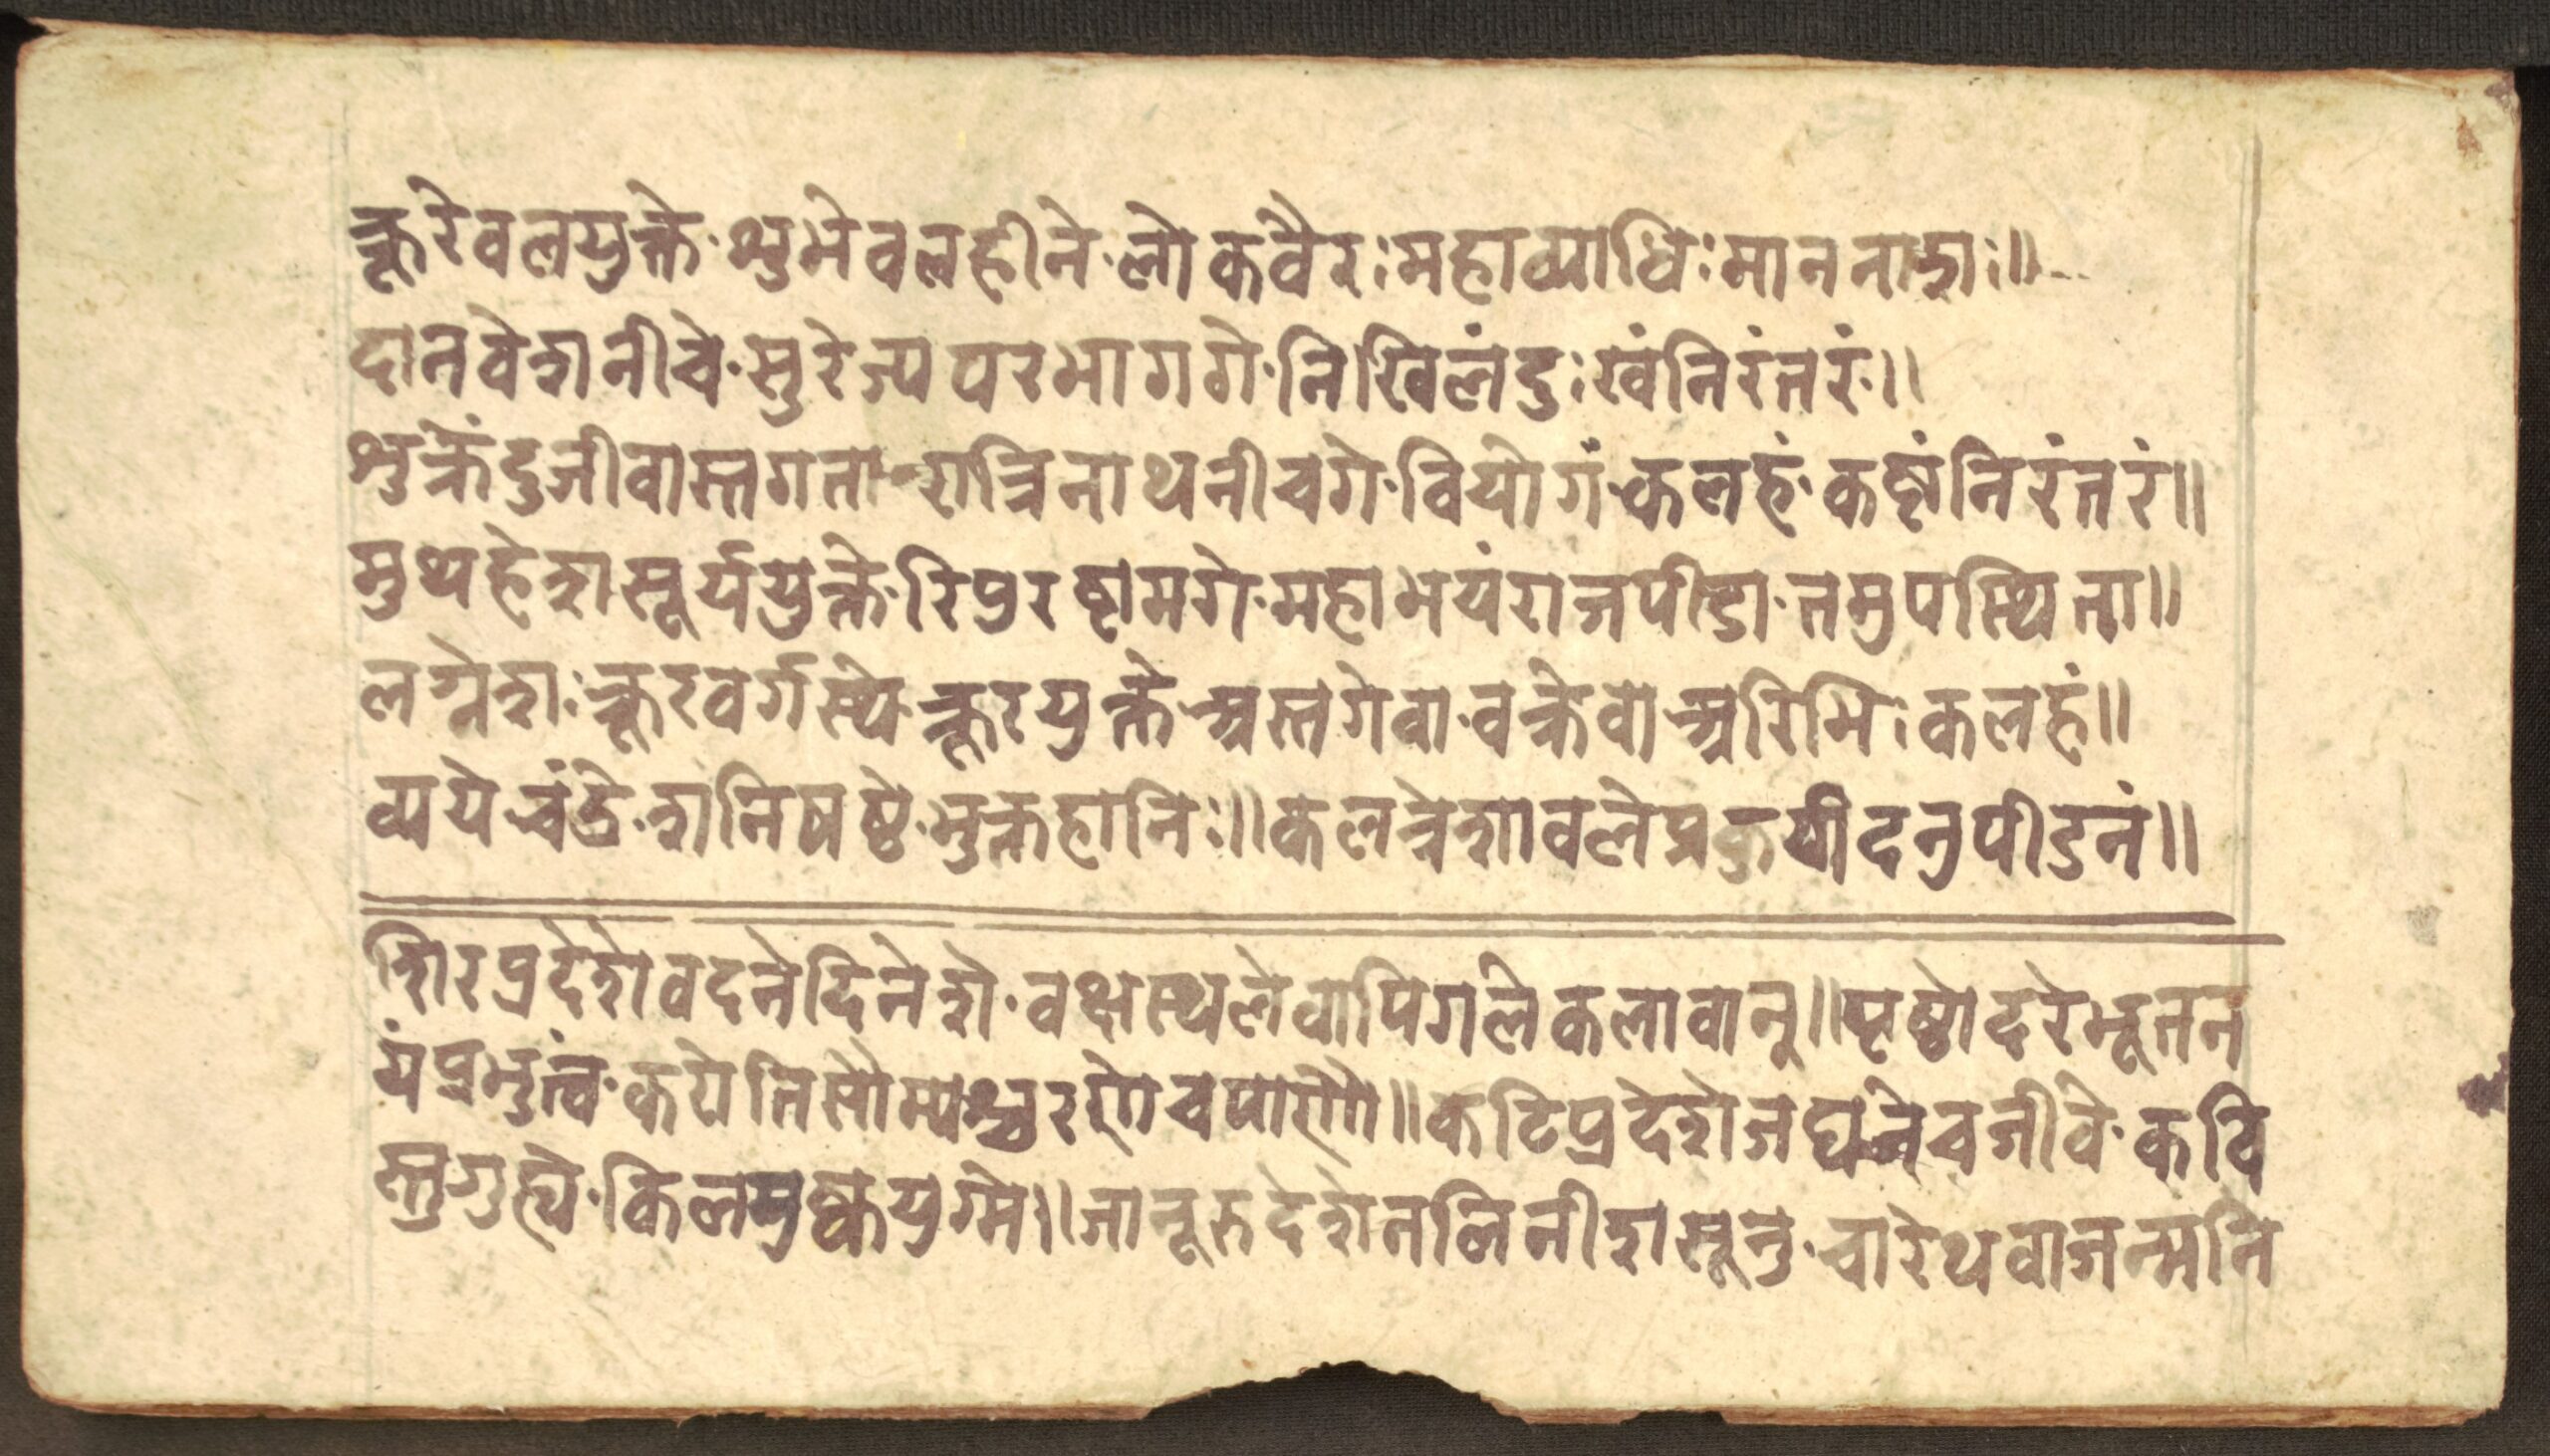 क्रूरे वलयुक्ते · शुभे वलहीने · लोकवैरः महाव्याधिः माननाशः॥
दानवेशनीचे · सुरेज्यपरभागगे · निखिलं दुःखं निरंतरं॥
शुक्रेंदुजीवास्तगता रात्रिनाथनीचगे · वियोगं कलहं · कष्टं निरंतरं॥
मुथहेशसूर्ययुक्ते · रिपुरष्टामगे · महाभयं राजपीडा · तमुपस्थिता॥
लग्नेशः क्रूरवर्गस्थे · क्रूरयुक्ते · अस्तगे वा · वक्रे वा अरिभिः कलहं॥
व्यये चंद्रे · शनिषष्ठे · भुक्तहानिः॥ कलत्रेशावले प्रकुर्यीदनुपीडनं॥
शिरप्रदेशे वदने दिनेशे · वक्षस्थले वापि गले कलावान्॥ पृष्ठोदरे भूतन
यं प्रभुत्वं · करोति सौम्यश्चरणे च पाणौ॥ कटिप्रदेशे जघने च जीवे · कवि
स्तु गुह्ये · किल मुष्कयुग्मे॥ जानूरुदेशे नलिनीशसूनु · चारेथवा जन्मनि